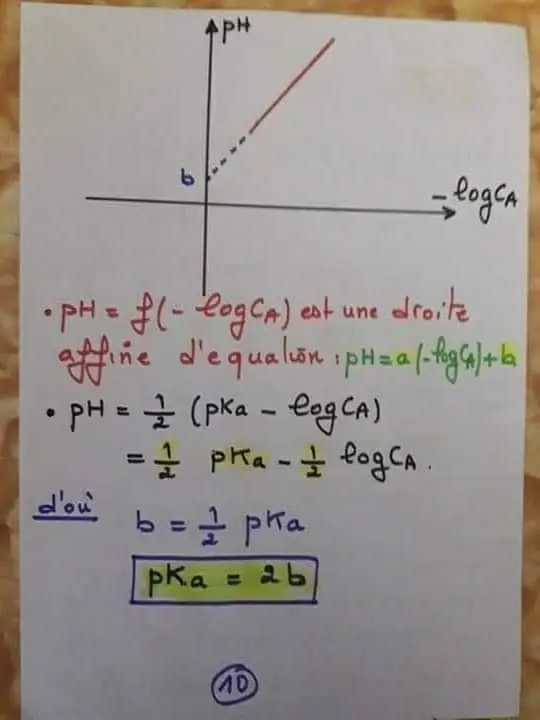 pH
b
- log CA
• pH = f(- log CA) est une droite
affine d'equation : pH = a(-log CA) + b
• pH = 1/2 (pKa - log CA)
= 1/2 pKa - 1/2 log CA.
d'où b = 1/2 pKa
pKa = 2b
10